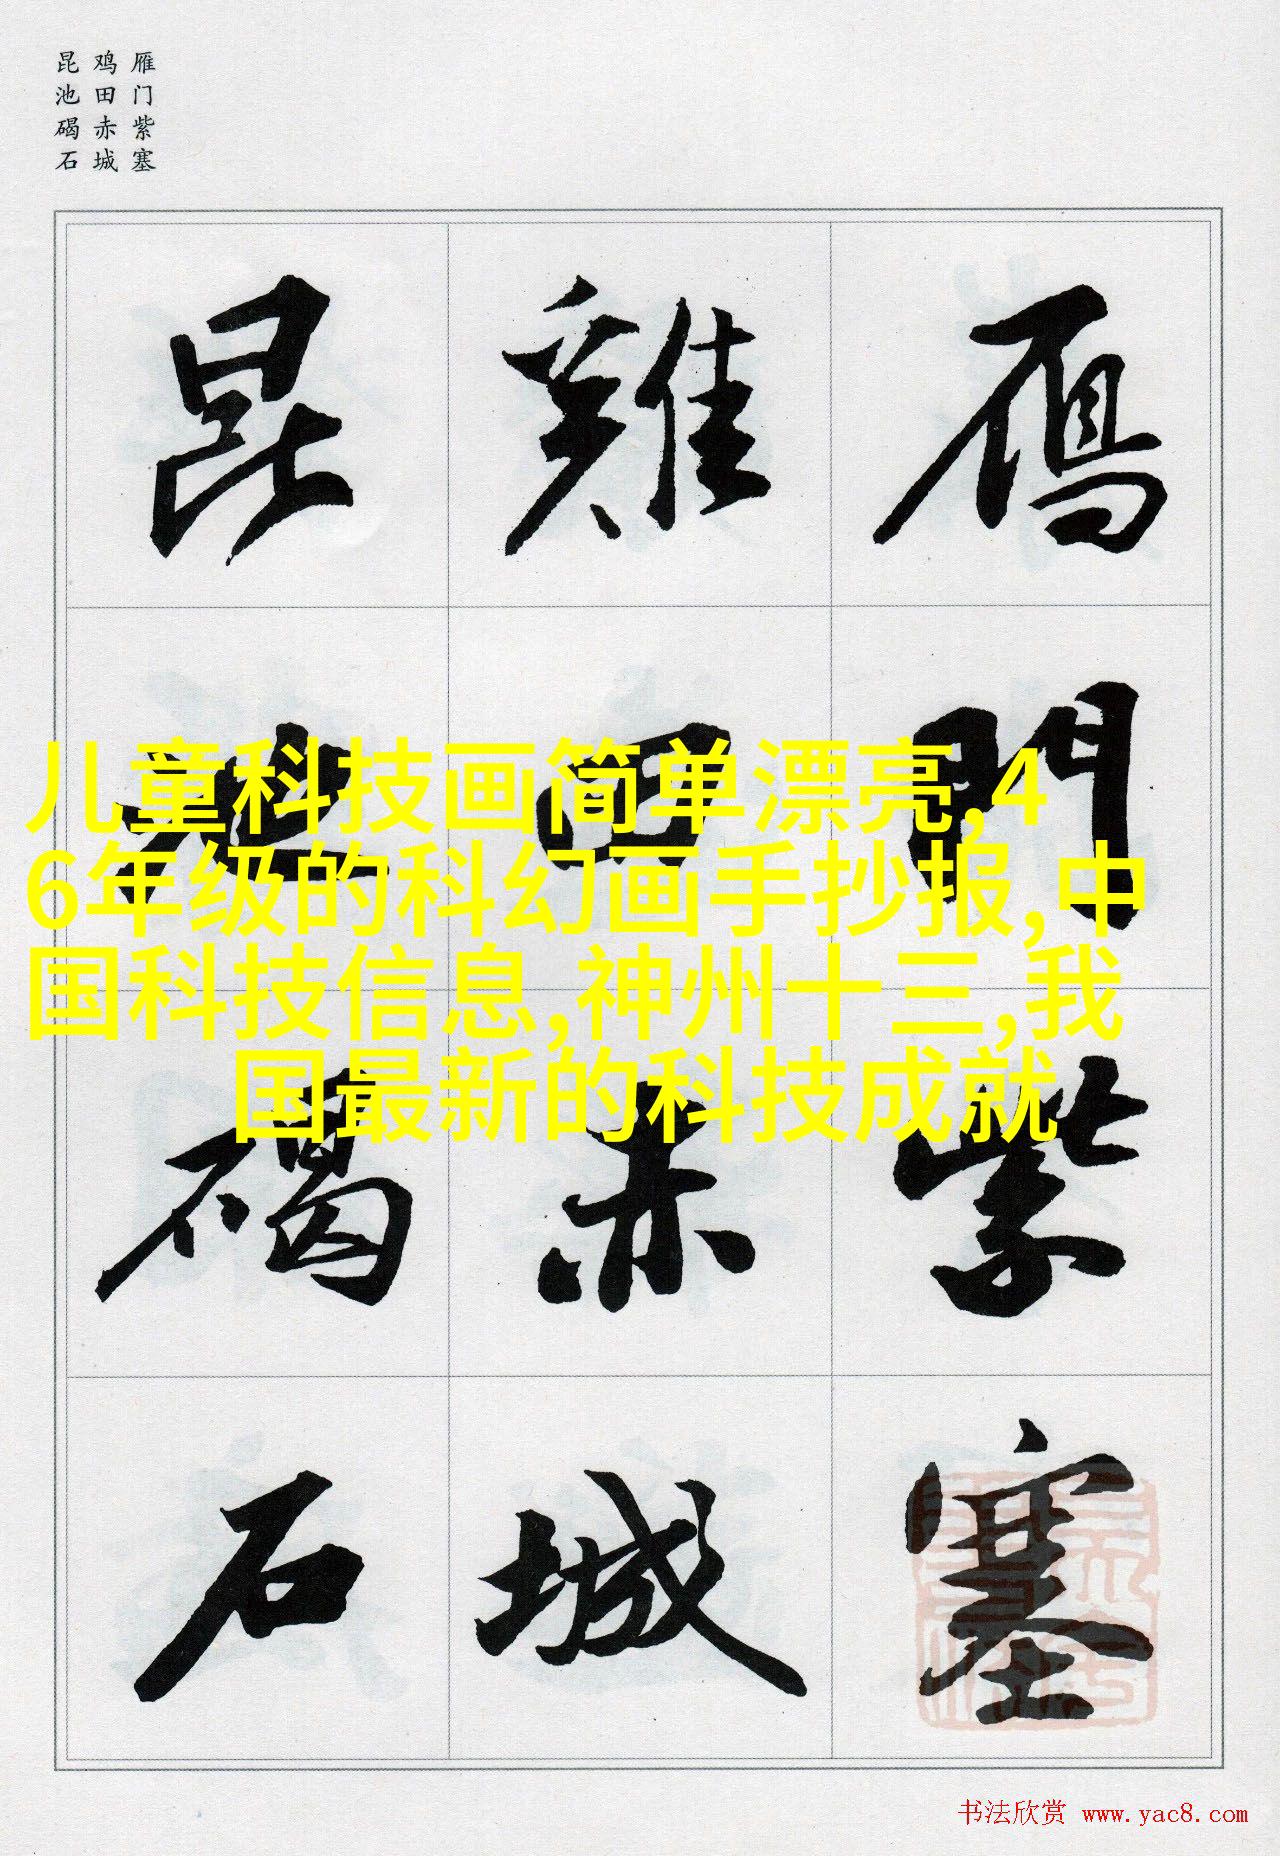 雁门紫塞
鸡田赤城
昆池碣石
鴈門紫塞
雞田赤城
昆池碣石
儿童科技画简单漂亮,4
6年级的科幻画手抄报,中
国科技信息,神州十三,我
国最新的科技成就
书法欣赏 www.yac8.com